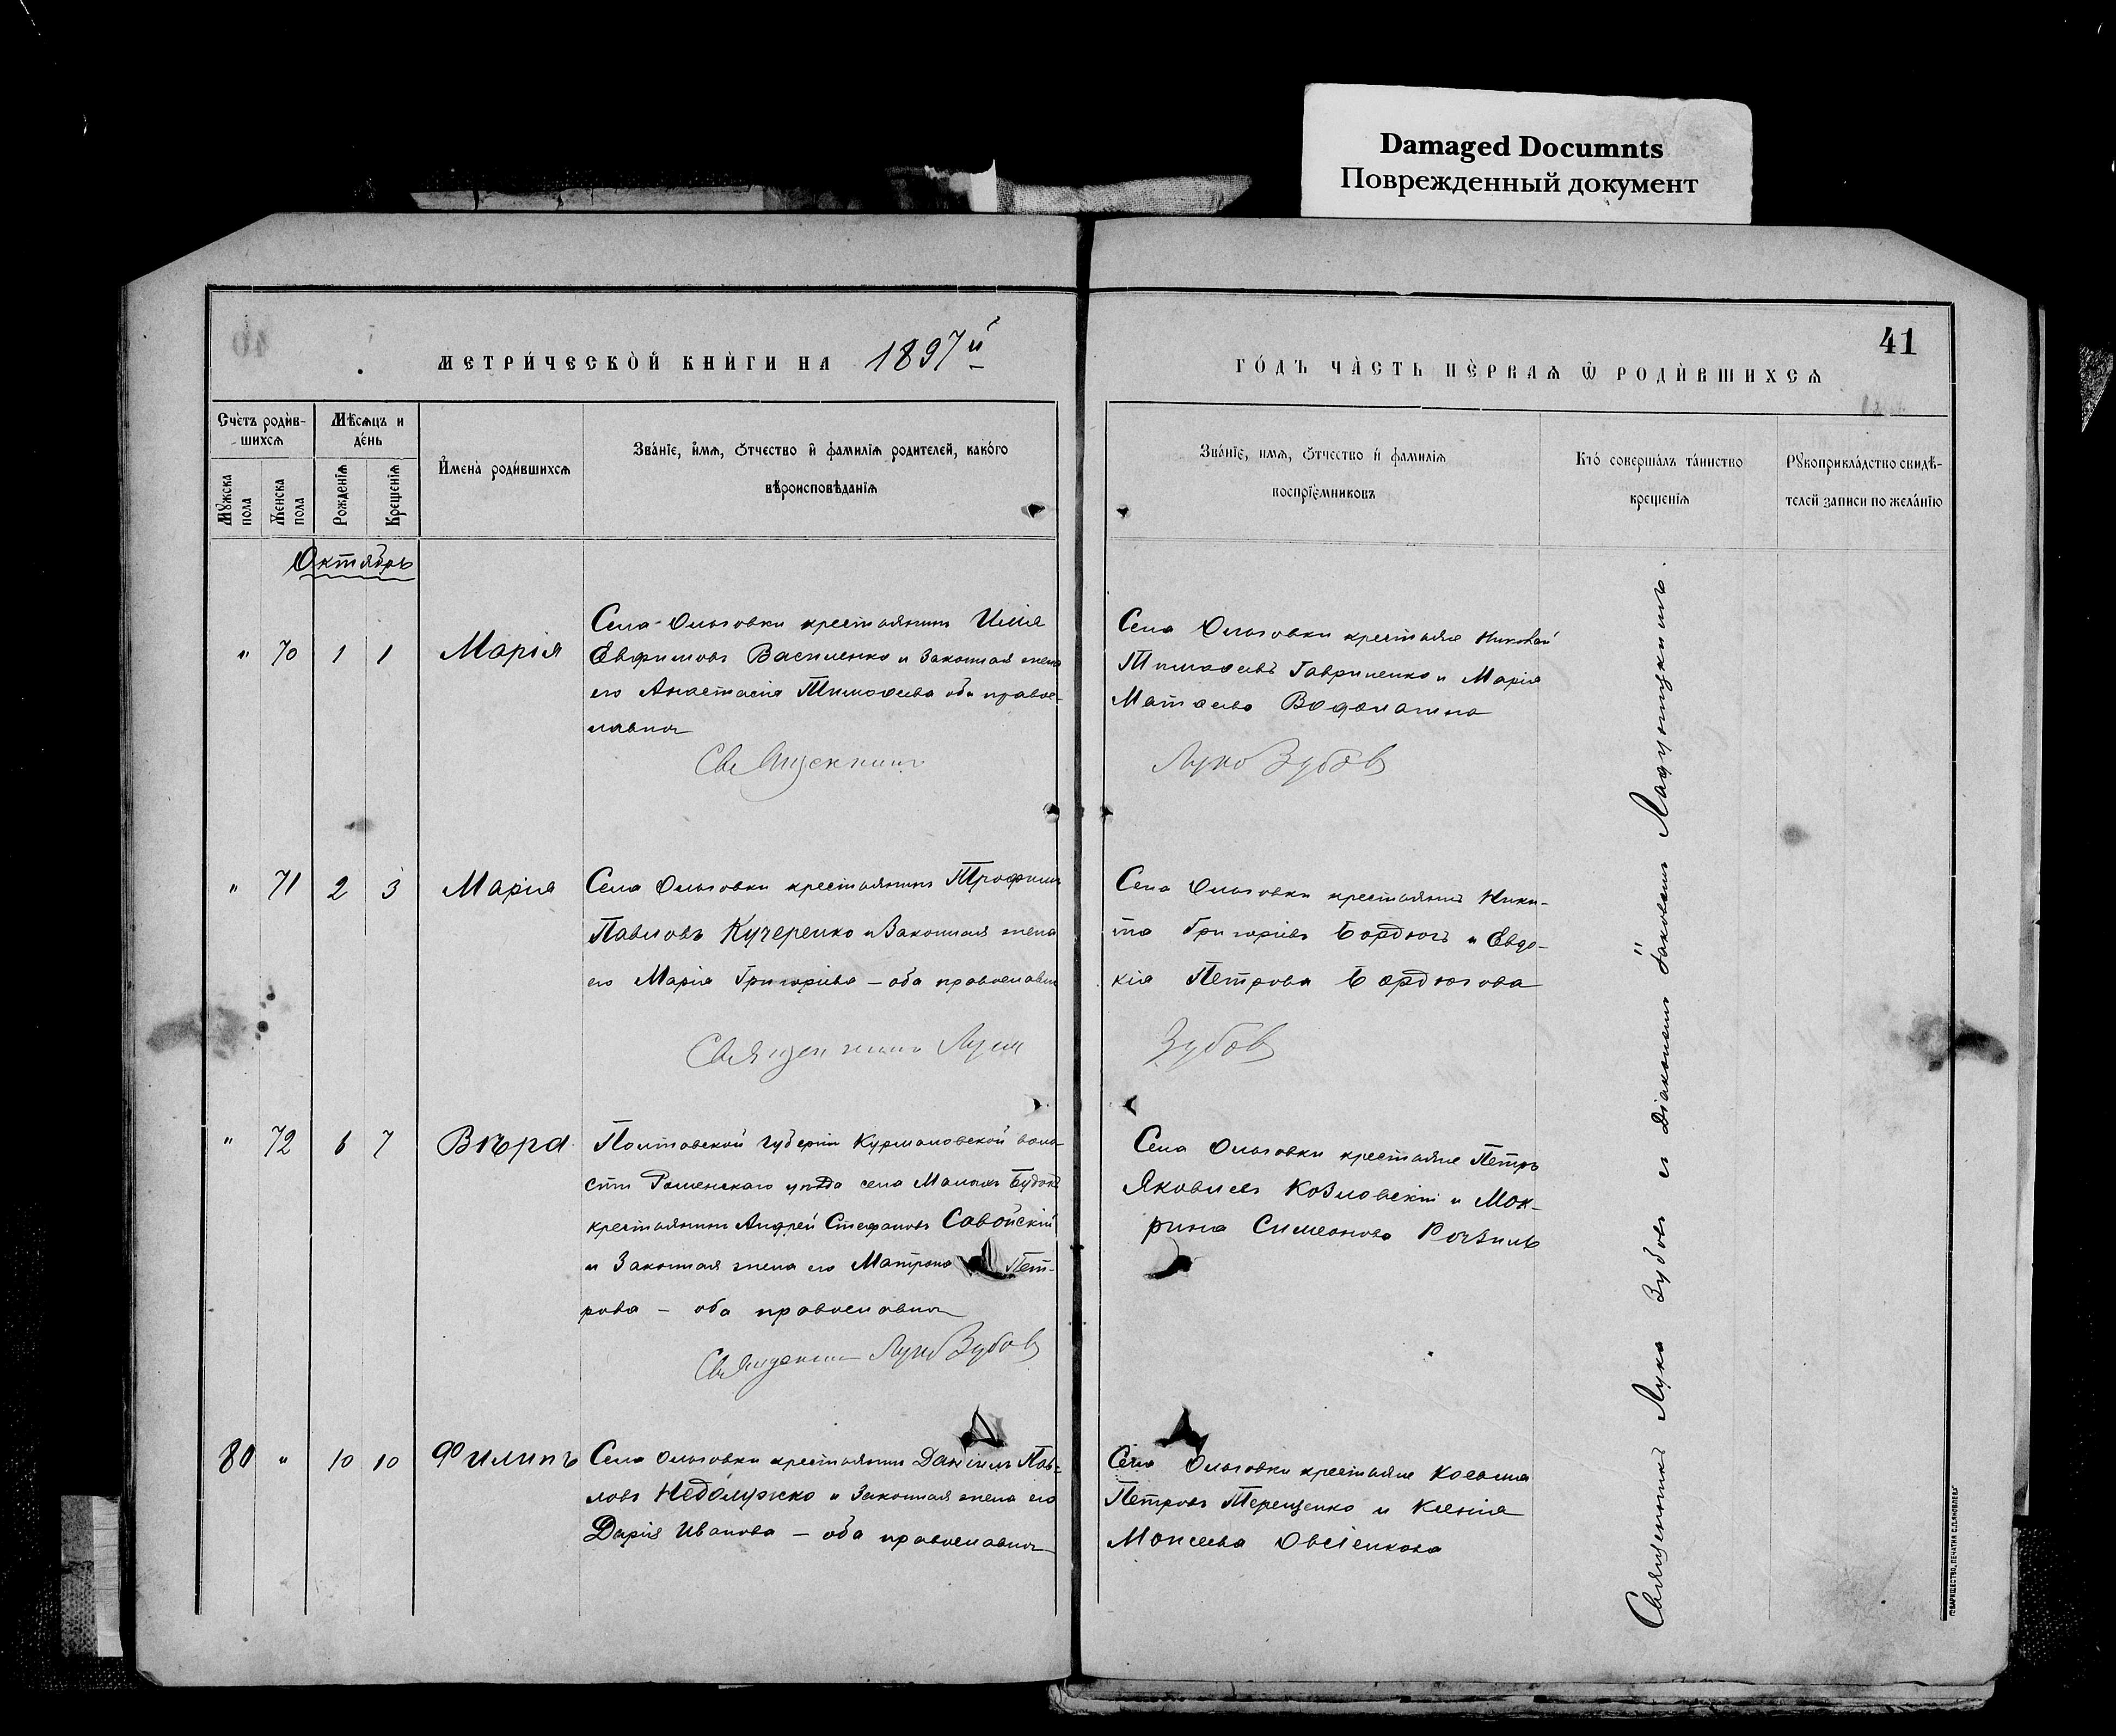 Damaged Documnts
Поврежденный документ
41
МЕТРИЧЕСКОЙ КНИГИ НА 1897й
ГОДЪ ЧАСТЬ ПЕРВАЯ Ѡ РОДИВШИХСЯ
Счетъ родив-
шихся
Мѣсяцъ и
день
Имена родившихся
Званіе, имя, отчество и фамилія родителей, какого
вѣроисповѣданія
Мужска
пола
Женска
пола
Рожденія
Крещенія
Званіе, имя, отчество и фамилія
воспріемниковъ
Кто совершалъ таинство
крещенія
Рукоприкладство свидѣ-
телей записи по желанію
Октябрь
" 70 1 1 Марія
Села Ольговки крестьянинъ Илія
Евфимовъ Василенко и законная жена
его Анастасія Тимоѳеева оба правос-
лавные
Священникъ
Села Ольговки крестьяне Николай
Тимоѳеевъ Гавриленко и Марія
Матѳеева Водолагина
Лука Зубов
" 71 2 3 Марія
Села Ольговки крестьянинъ Трофимъ
Павловъ Кучеренко и законная жена
его Марія Григоріева – оба православн
Священникъ Лука
Села Ольговки крестьянинъ Ники-
та Григоріевъ Бордюгъ и Евдо-
кія Петрова Бордюгова
Зубов
" 72 6 7 Вѣра
Полтавской губерніи Курмановской воло-
сти Роменскаго уѣзда села Малыхъ Будокъ
крестьянинъ Андрей Стефановъ Савойскій
и законная жена его Матрона Пет-
рова – оба православные
Священникъ Лука Зубов
Села Ольговки крестьяне Петръ
Яковлевъ Козловскій и Мок-
рина Симеонова
80 " 10 10 Филипъ
Села Ольговки крестьянинъ Даніилъ Пав-
ловъ Недолужко и законная жена его
Дарія Иванова – оба православные
Села Ольговки крестьяне Косьма
Петровъ Терещенко и Ксенія
Моисеева Овсіенкова
Священникъ Лука Зубовъ съ Діакономъ Іаковомъ
ТОВАРИЩЕСТВО „ПЕЧАТНЯ С.П.ЯКОВЛЕВА"